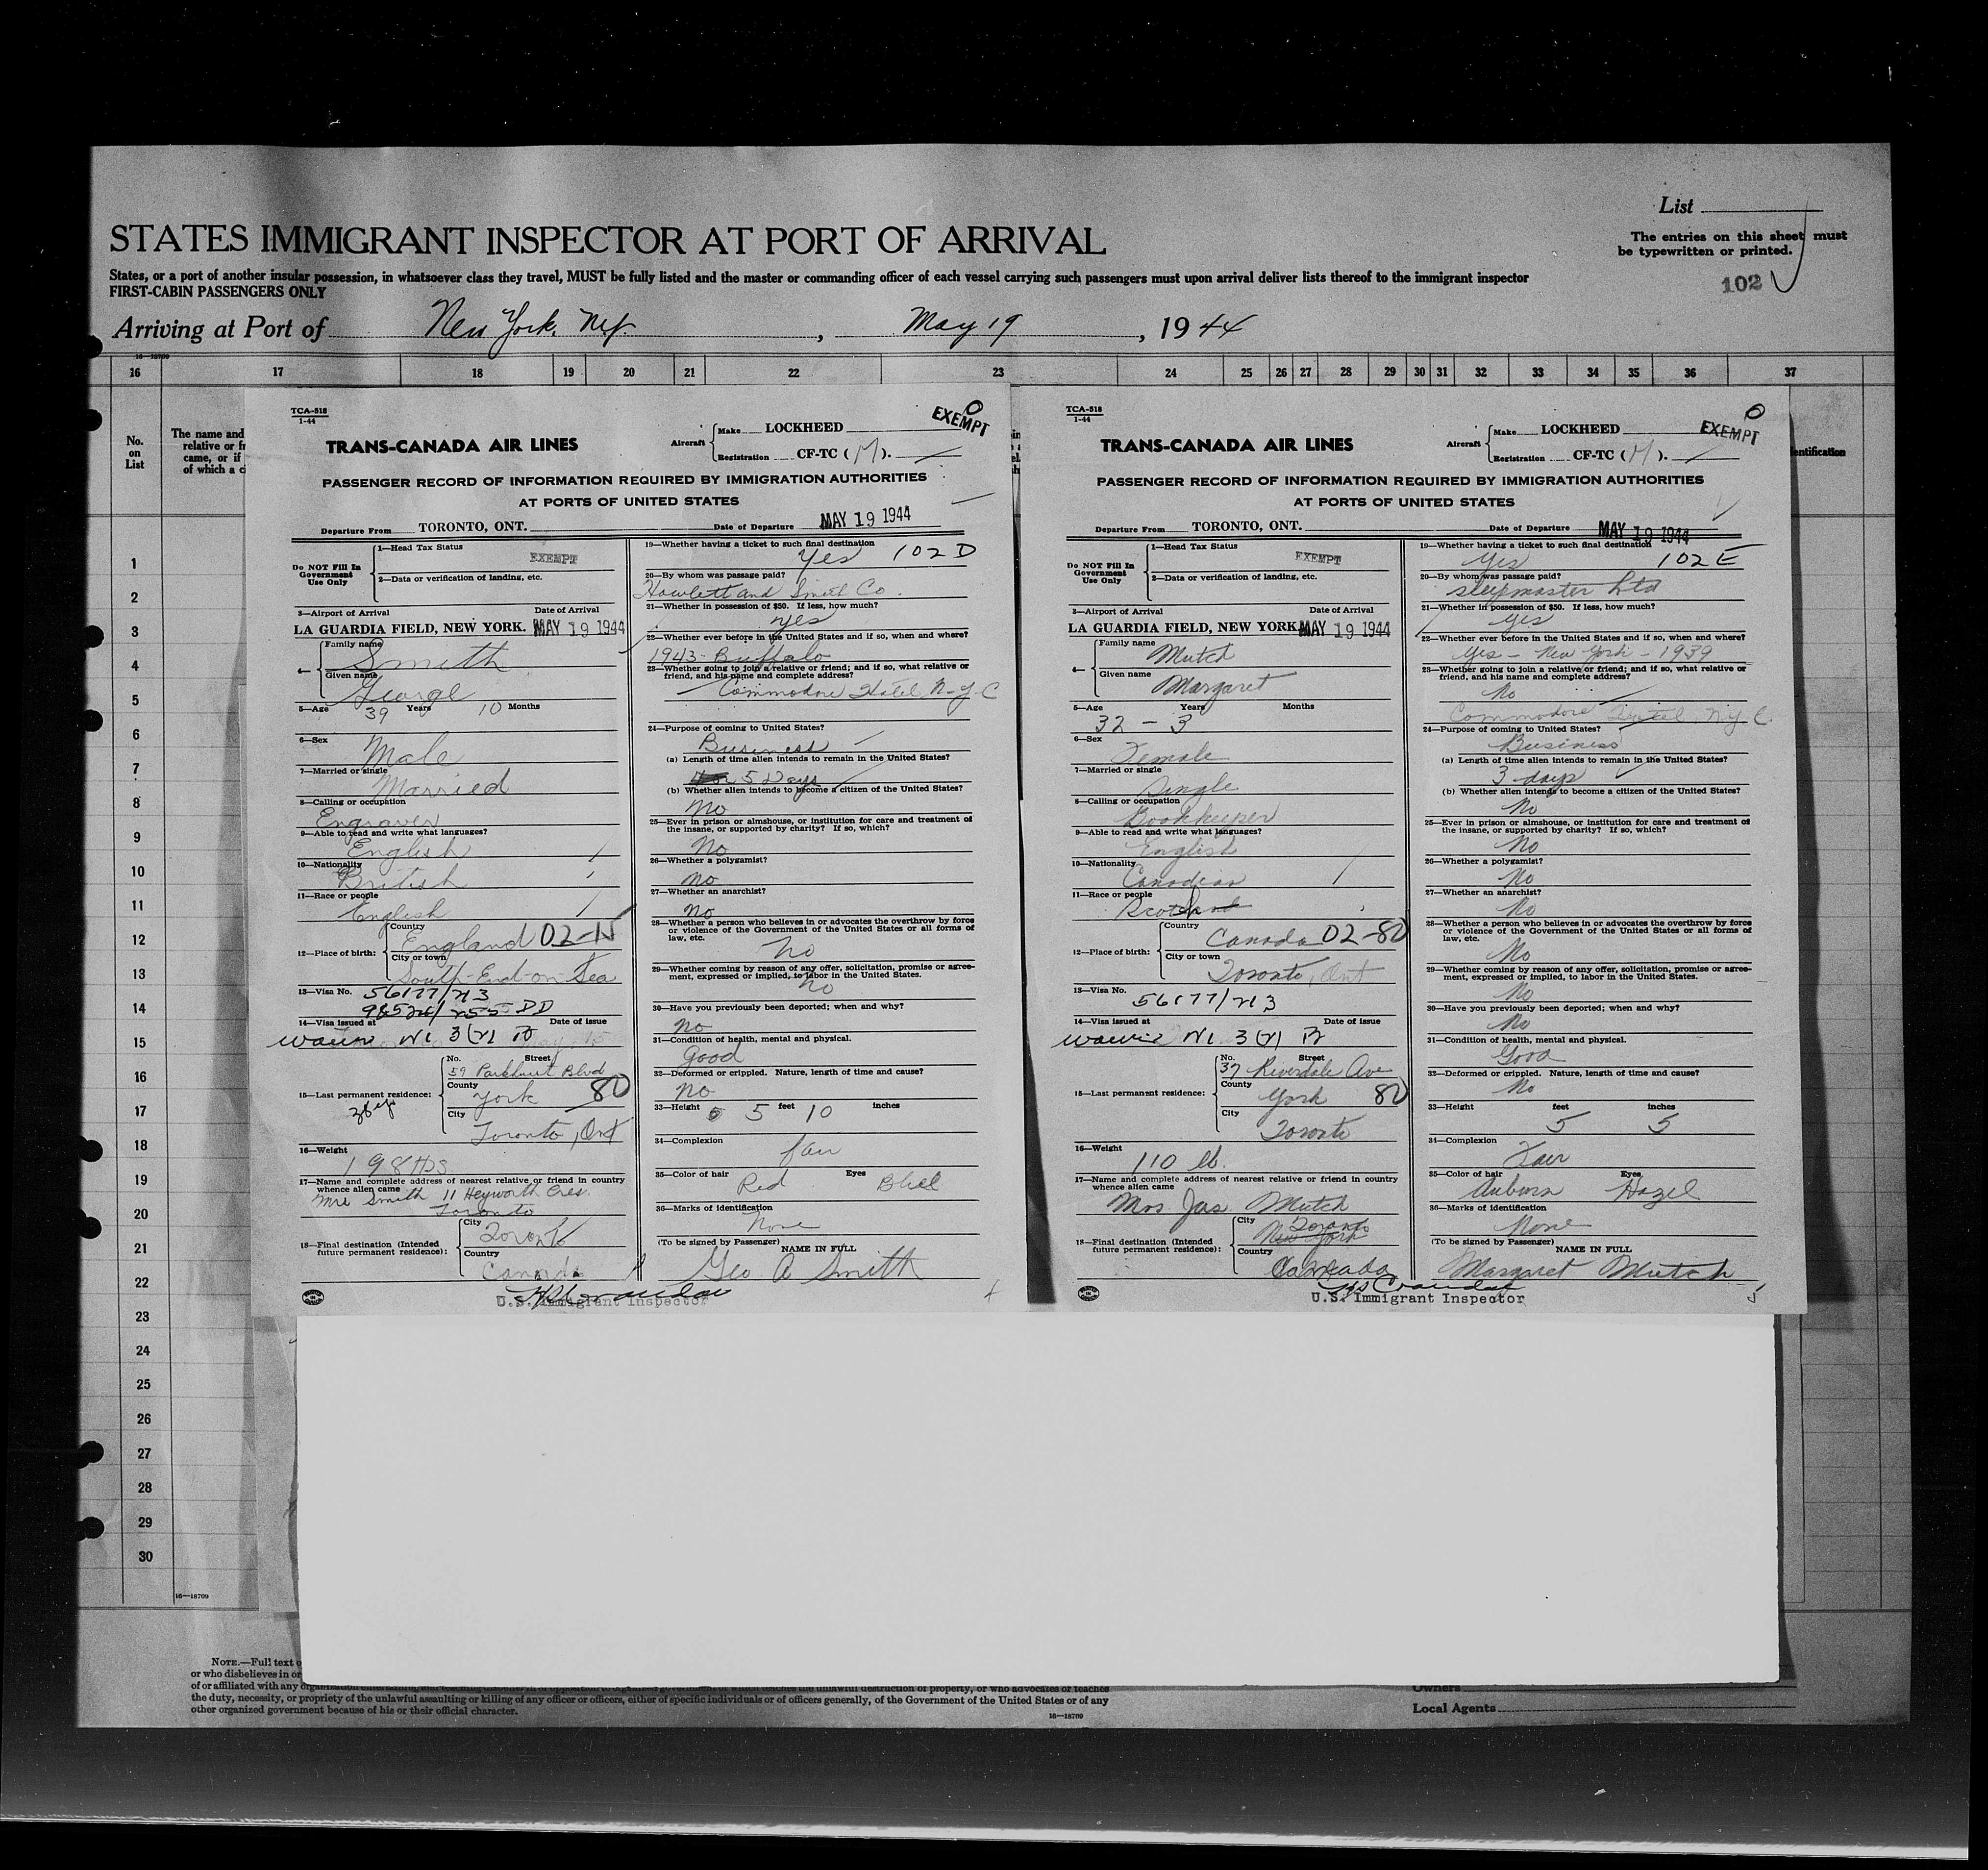 List
STATES IMMIGRANT INSPECTOR AT PORT OF ARRIVAL
The entries on this sheet must
be typewritten or printed.
States, or a port of another insular possession, in whatsoever class they travel, MUST be fully listed and the master or commanding officer of each vessel carrying such passengers must upon arrival deliver lists thereof to the immigrant inspector
FIRST-CABIN PASSENGERS ONLY
102
Arriving at Port of New York, N.Y. , May 19 , 1944
16—18709
16 17 18 19 20 21 22 23 24 25 26 27 28 29 30 31 32 33 34 35 36 37
No.
on
List
The name and
relative or
came, or if
of which a
entification
1
2
3
4
5
6
7
8
9
10
11
12
13
14
15
16
17
18
19
20
21
22
23
24
25
26
27
28
29
30
TCA-518
1-44
EXEMPT
TRANS-CANADA AIR LINES
Aircraft
Make LOCKHEED
Registration CF-TC (M).
PASSENGER RECORD OF INFORMATION REQUIRED BY IMMIGRATION AUTHORITIES
AT PORTS OF UNITED STATES
Departure From TORONTO, ONT. Date of Departure MAY 19 1944
Do NOT Fill In
Government
Use Only
1—Head Tax Status EXEMPT
2—Data or verification of landing, etc.
3—Airport of Arrival Date of Arrival
LA GUARDIA FIELD, NEW YORK. MAY 19 1944
4—
Family name
Smith
Given name
George
5—Age 39 Years 10 Months
6—Sex
Male
7—Married or single
Married
8—Calling or occupation
Engraver
9—Able to read and write what languages?
English
10—Nationality
British
11—Race or people
English
12—Place of birth:
Country
England 02-15
City or town
South-End-on-Sea
13—Visa No. 56177/213
14—Visa issued at Date of issue
3(2)
15—Last permanent residence:
No. Street
59 Parkhurst Blvd
County
York 80
City
Toronto, Ont
16—Weight
198 lbs
17—Name and complete address of nearest relative or friend in country
whence alien came
Mrs Smith 11 Heyworth Cres.
Toronto
18—Final destination (Intended
future permanent residence):
City
Toronto
Country
Canada
U.S. Immigrant Inspector
19—Whether having a ticket to such final destination
Yes 102 D
20—By whom was passage paid?
Howlett and Smith Co.
21—Whether in possession of $50. If less, how much?
Yes
22—Whether ever before in the United States and if so, when and where?
1943 - Buffalo
23—Whether going to join a relative or friend; and if so, what relative or
friend, and his name and complete address?
Commodore Hotel N.Y.C
24—Purpose of coming to United States?
Business
(a) Length of time alien intends to remain in the United States?
5 Days
(b) Whether alien intends to become a citizen of the United States?
No
25—Ever in prison or almshouse, or institution for care and treatment of
the insane, or supported by charity? If so, which?
No
26—Whether a polygamist?
No
27—Whether an anarchist?
No
28—Whether a person who believes in or advocates the overthrow by force
or violence of the Government of the United States or all forms of
law, etc.
No
29—Whether coming by reason of any offer, solicitation, promise or agree-
ment, expressed or implied, to labor in the United States.
No
30—Have you previously been deported; when and why?
No
31—Condition of health, mental and physical.
Good
32—Deformed or crippled. Nature, length of time and cause?
No
33—Height 5 feet 10 inches
34—Complexion
fair
35—Color of hair Eyes
Red Blue
36—Marks of identification
None
(To be signed by Passenger) NAME IN FULL
Geo A Smith
TCA-518
1-44
EXEMPT
TRANS-CANADA AIR LINES
Aircraft
Make LOCKHEED
Registration CF-TC (M).
PASSENGER RECORD OF INFORMATION REQUIRED BY IMMIGRATION AUTHORITIES
AT PORTS OF UNITED STATES
Departure From TORONTO, ONT. Date of Departure MAY 19 1944
Do NOT Fill In
Government
Use Only
1—Head Tax Status EXEMPT
2—Data or verification of landing, etc.
3—Airport of Arrival Date of Arrival
LA GUARDIA FIELD, NEW YORK. MAY 19 1944
4—
Family name
Mutch
Given name
Margaret
5—Age Years Months
32 - 3
6—Sex
Female
7—Married or single
Single
8—Calling or occupation
Bookkeeper
9—Able to read and write what languages?
English
10—Nationality
Canadian
11—Race or people
Scotch
12—Place of birth:
Country
Canada 02-80
City or town
Toronto, Ont
13—Visa No.
56177/213
14—Visa issued at Date of issue
3(2)
15—Last permanent residence:
No. Street
37 Riverdale Ave
County
York 80
City
Toronto
16—Weight
110 lb.
17—Name and complete address of nearest relative or friend in country
whence alien came
Mrs Jas Mutch
18—Final destination (Intended
future permanent residence):
City
Toronto
New York
Country
Canada
U.S. Immigrant Inspector
19—Whether having a ticket to such final destination
Yes 102 E
20—By whom was passage paid?
Sleepmaster Ltd
21—Whether in possession of $50. If less, how much?
Yes
22—Whether ever before in the United States and if so, when and where?
Yes - New York - 1939
23—Whether going to join a relative or friend; and if so, what relative or
friend, and his name and complete address?
No
Commodore Hotel N.Y.C.
24—Purpose of coming to United States?
Business
(a) Length of time alien intends to remain in the United States?
3 days
(b) Whether alien intends to become a citizen of the United States?
No
25—Ever in prison or almshouse, or institution for care and treatment of
the insane, or supported by charity? If so, which?
No
26—Whether a polygamist?
No
27—Whether an anarchist?
No
28—Whether a person who believes in or advocates the overthrow by force
or violence of the Government of the United States or all forms of
law, etc.
No
29—Whether coming by reason of any offer, solicitation, promise or agree-
ment, expressed or implied, to labor in the United States.
No
30—Have you previously been deported; when and why?
No
31—Condition of health, mental and physical.
Good
32—Deformed or crippled. Nature, length of time and cause?
No
33—Height feet inches
5 5
34—Complexion
Fair
35—Color of hair Eyes
Auburn Hazel
36—Marks of identification
None
(To be signed by Passenger) NAME IN FULL
Margaret Mutch
16—18709
NOTE.—Full text
or who disbelieves in or
of or affiliated with any organization unlawful destruction of property, or who advocates or teaches
the duty, necessity, or propriety of the unlawful assaulting or killing of any officer or officers, either of specific individuals or of officers generally, of the Government of the United States or of any
other organized government because of his or their official character.
16—18709
Owners
Local Agents